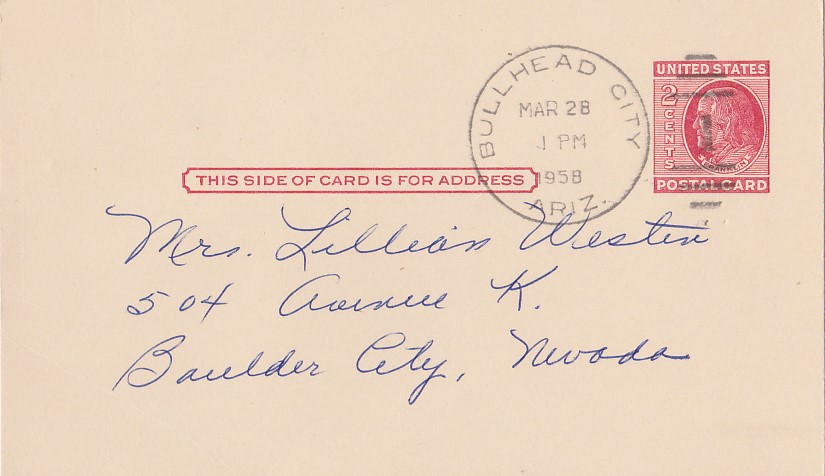 BULLHEAD CITY
MAR 28
1 PM
1958
ARIZ.
UNITED STATES
2 CENTS
FRANKLIN
POSTAL CARD
THIS SIDE OF CARD IS FOR ADDRESS
Mrs. Lillian Westin
504 Avenue K.
Boulder City, Nevada